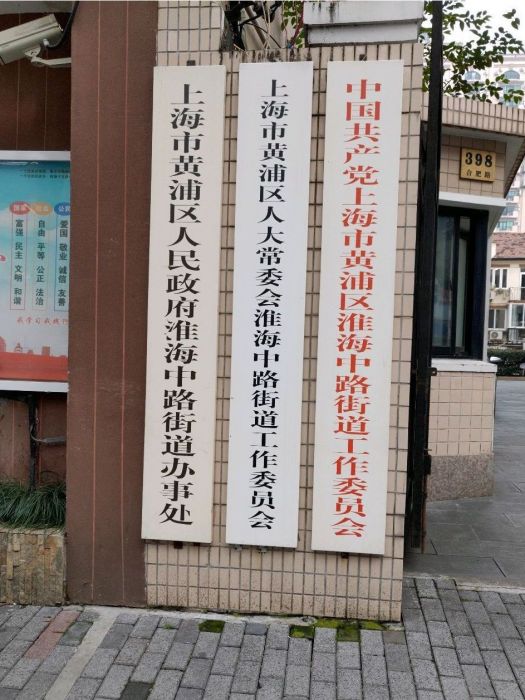 中国共产党上海市黄浦区淮海中路街道工作委员会
上海市黄浦区人大常委会淮海中路街道工作委员会
上海市黄浦区人民政府淮海中路街道办事处
398
合肥路
富强 民主 文明 和谐
自由 平等 公正 法治
爱国 敬业 诚信 友善